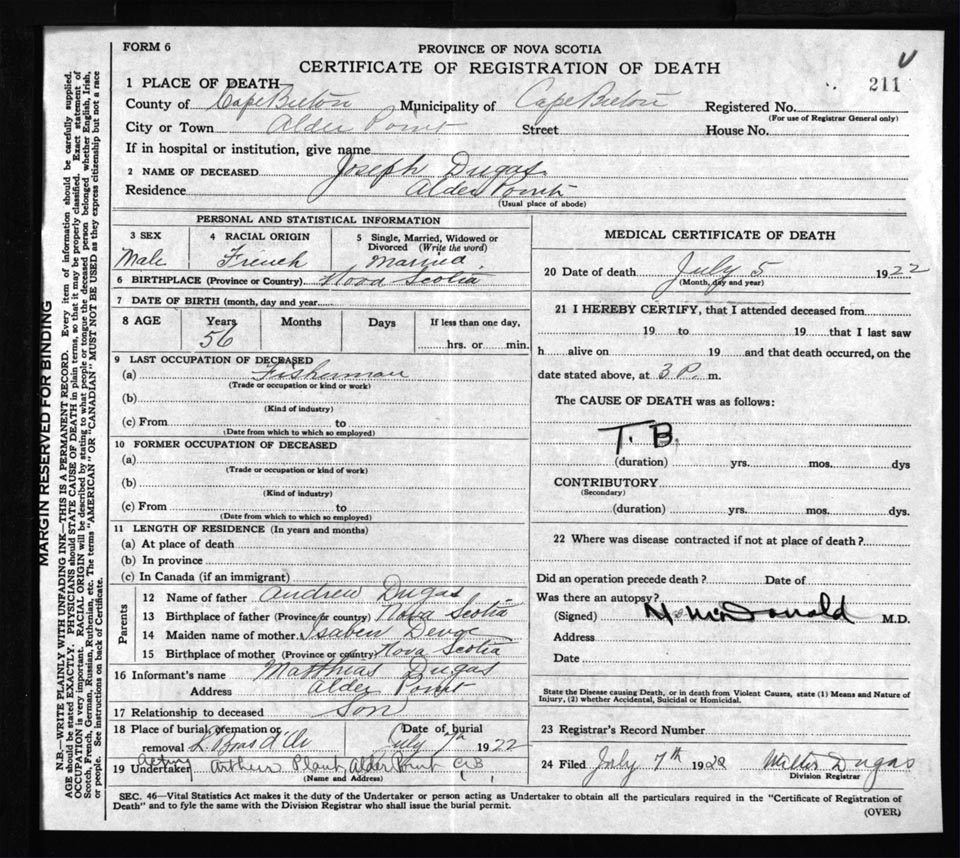 FORM 6
PROVINCE OF NOVA SCOTIA
CERTIFICATE OF REGISTRATION OF DEATH
211
1 PLACE OF DEATH
County of Cape Breton Municipality of Cape Breton Registered No.
(For use of Registrar General only)
City or Town Alder Point Street House No.
If in hospital or institution, give name
2 NAME OF DECEASED Joseph Dugas
Residence Alder Point
(Usual place of abode)
PERSONAL AND STATISTICAL INFORMATION
3 SEX 4 RACIAL ORIGIN 5 Single, Married, Widowed or
Divorced (Write the word)
Male French Married
6 BIRTHPLACE (Province or Country) Nova Scotia
7 DATE OF BIRTH (month, day and year)
8 AGE Years Months Days If less than one day,
56 hrs. or min.
9 LAST OCCUPATION OF DECEASED
(a) Fisherman
(Trade or occupation or kind or work)
(b)
(Kind of industry)
(c) From to
(Date from which to which so employed)
10 FORMER OCCUPATION OF DECEASED
(a)
(Trade or occupation or kind of work)
(b)
(Kind of industry)
(c) From to
(Date from which to which so employed)
11 LENGTH OF RESIDENCE (In years and months)
(a) At place of death
(b) In province
(c) In Canada (if an immigrant)
Parents
12 Name of father Andrew Dugas
13 Birthplace of father (Province or country) Nova Scotia
14 Maiden name of mother
15 Birthplace of mother (Province or country) Nova Scotia
16 Informant's name Matthias Dugas
Address Alder Point
17 Relationship to deceased Son
18 Place of burial, cremation or Date of burial
removal L. Bras d'Or July 7th 1922
Acting
19 Undertaker Arthur Plant Alder Point C.B
(Name and Address)
MEDICAL CERTIFICATE OF DEATH
20 Date of death July 5 1922
(Month, day and year)
21 I HEREBY CERTIFY, that I attended deceased from
19 to 19 that I last saw
h alive on 19 and that death occurred, on the
date stated above, at 3 P. m.
The CAUSE OF DEATH was as follows:
T. B.
(duration) yrs. mos. dys
CONTRIBUTORY
(Secondary)
(duration) yrs. mos. dys.
22 Where was disease contracted if not at place of death?
Did an operation precede death? Date of
Was there an autopsy?
(Signed) McDonald M.D.
Address
Date
State the Disease causing Death, or in death from Violent Causes, state (1) Means and Nature of
Injury, (2) whether Accidental, Suicidal or Homicidal.
23 Registrar's Record Number
24 Filed July 7th 1922 Dugas
Division Registrar
SEC. 46—Vital Statistics Act makes it the duty of the Undertaker or person acting as Undertaker to obtain all the particulars required in the "Certificate of Registration of
Death" and to fyle the same with the Division Registrar who shall issue the burial permit.
(OVER)
MARGIN RESERVED FOR BINDING
N.B.—WRITE PLAINLY WITH UNFADING INK—THIS IS A PERMANENT RECORD. Every item of information should be carefully supplied.
AGE should be stated EXACTLY. PHYSICIANS should STATE CAUSE OF DEATH in plain terms, so that it may be properly classified. Exact statement of
OCCUPATION is very important. RACIAL ORIGIN will be described by stating to what people or tongue the deceased person belonged, whether English, Irish,
Scotch, French, German, Russian, Ruthenian, etc. The terms "AMERICAN" OR "CANADIAN" MUST NOT BE USED as they express citizenship but not a race
or people. See instructions on back of Certificate.